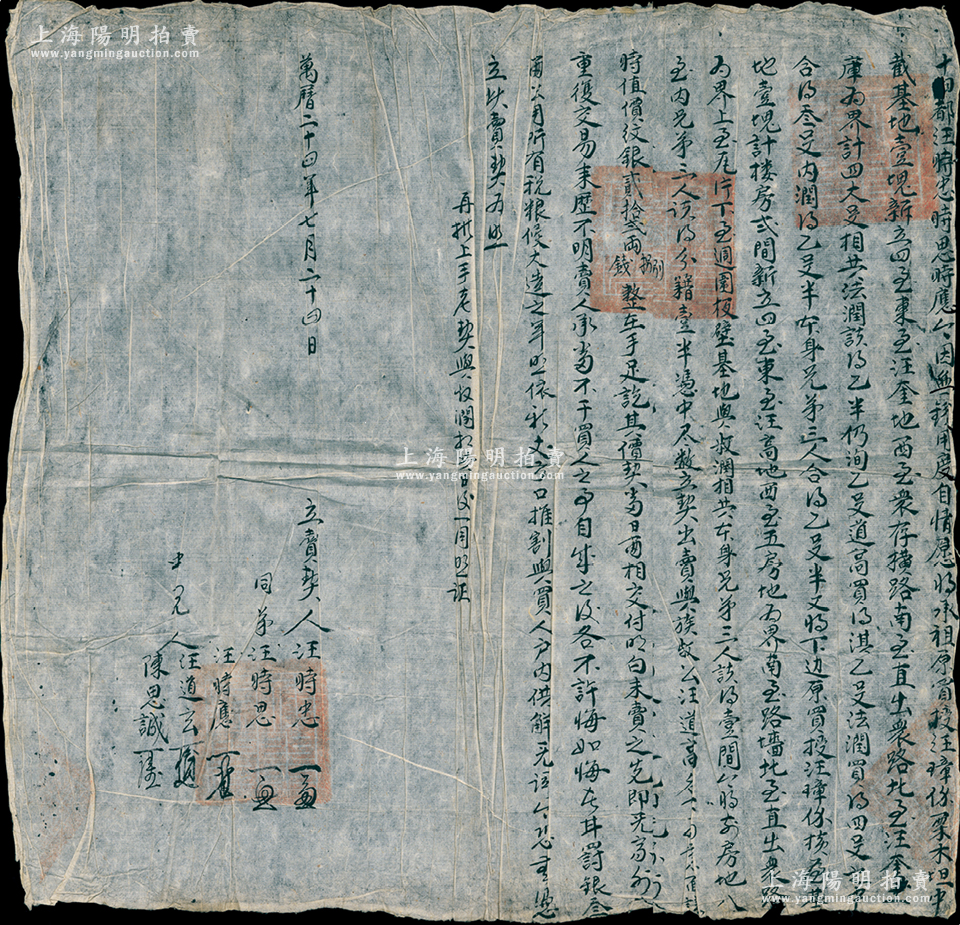 十四都汪時忠時思時應今因無錢用度自情愿將承祖原買授汪璋係栗木坦中
截基地壹塊新立四至東至汪奎地西至衆存橫路南至直出衆路北至汪奎
庫為界計四大
合得叁 內潤得 半本身兄弟三人合得 半又將下邊原買授汪璋係
地壹塊計楼房弍間新立四至東至汪高地西至五房地為界南至路墻北至直出衆路
為界上至瓦片下至週圍板壁基地與叔潤相共本身兄弟三人該得壹間今將前房地八
至內兄弟三人該得分籍壹半憑中尽數立契出賣與族叔公汪道高名下
時值價紋銀貳拾弍兩捌錢整在手足訖其價契當日兩相交付明白未賣之先即無家外人
重復交易来歷不明賣人承當不干買人之事自成之後各不許悔如悔者甘罰銀叁
兩公用所有税粮候大造之年照依新丈畝口推割與買人户内供解无詞今恐無憑
立此賣契為照
再批上手老契與叔潤相共日後一同照证
萬曆二十四年七月二十四日
立賣契人汪時忠
同弟汪時思
汪時應
中見人汪道玄
陳思誠
上海陽明拍賣
www.yangmingauction.com
上海陽明拍賣
www.yangmingauction.com
上海陽明拍賣
www.yangmingauction.com
上海陽明拍賣
www.yangmingauction.com